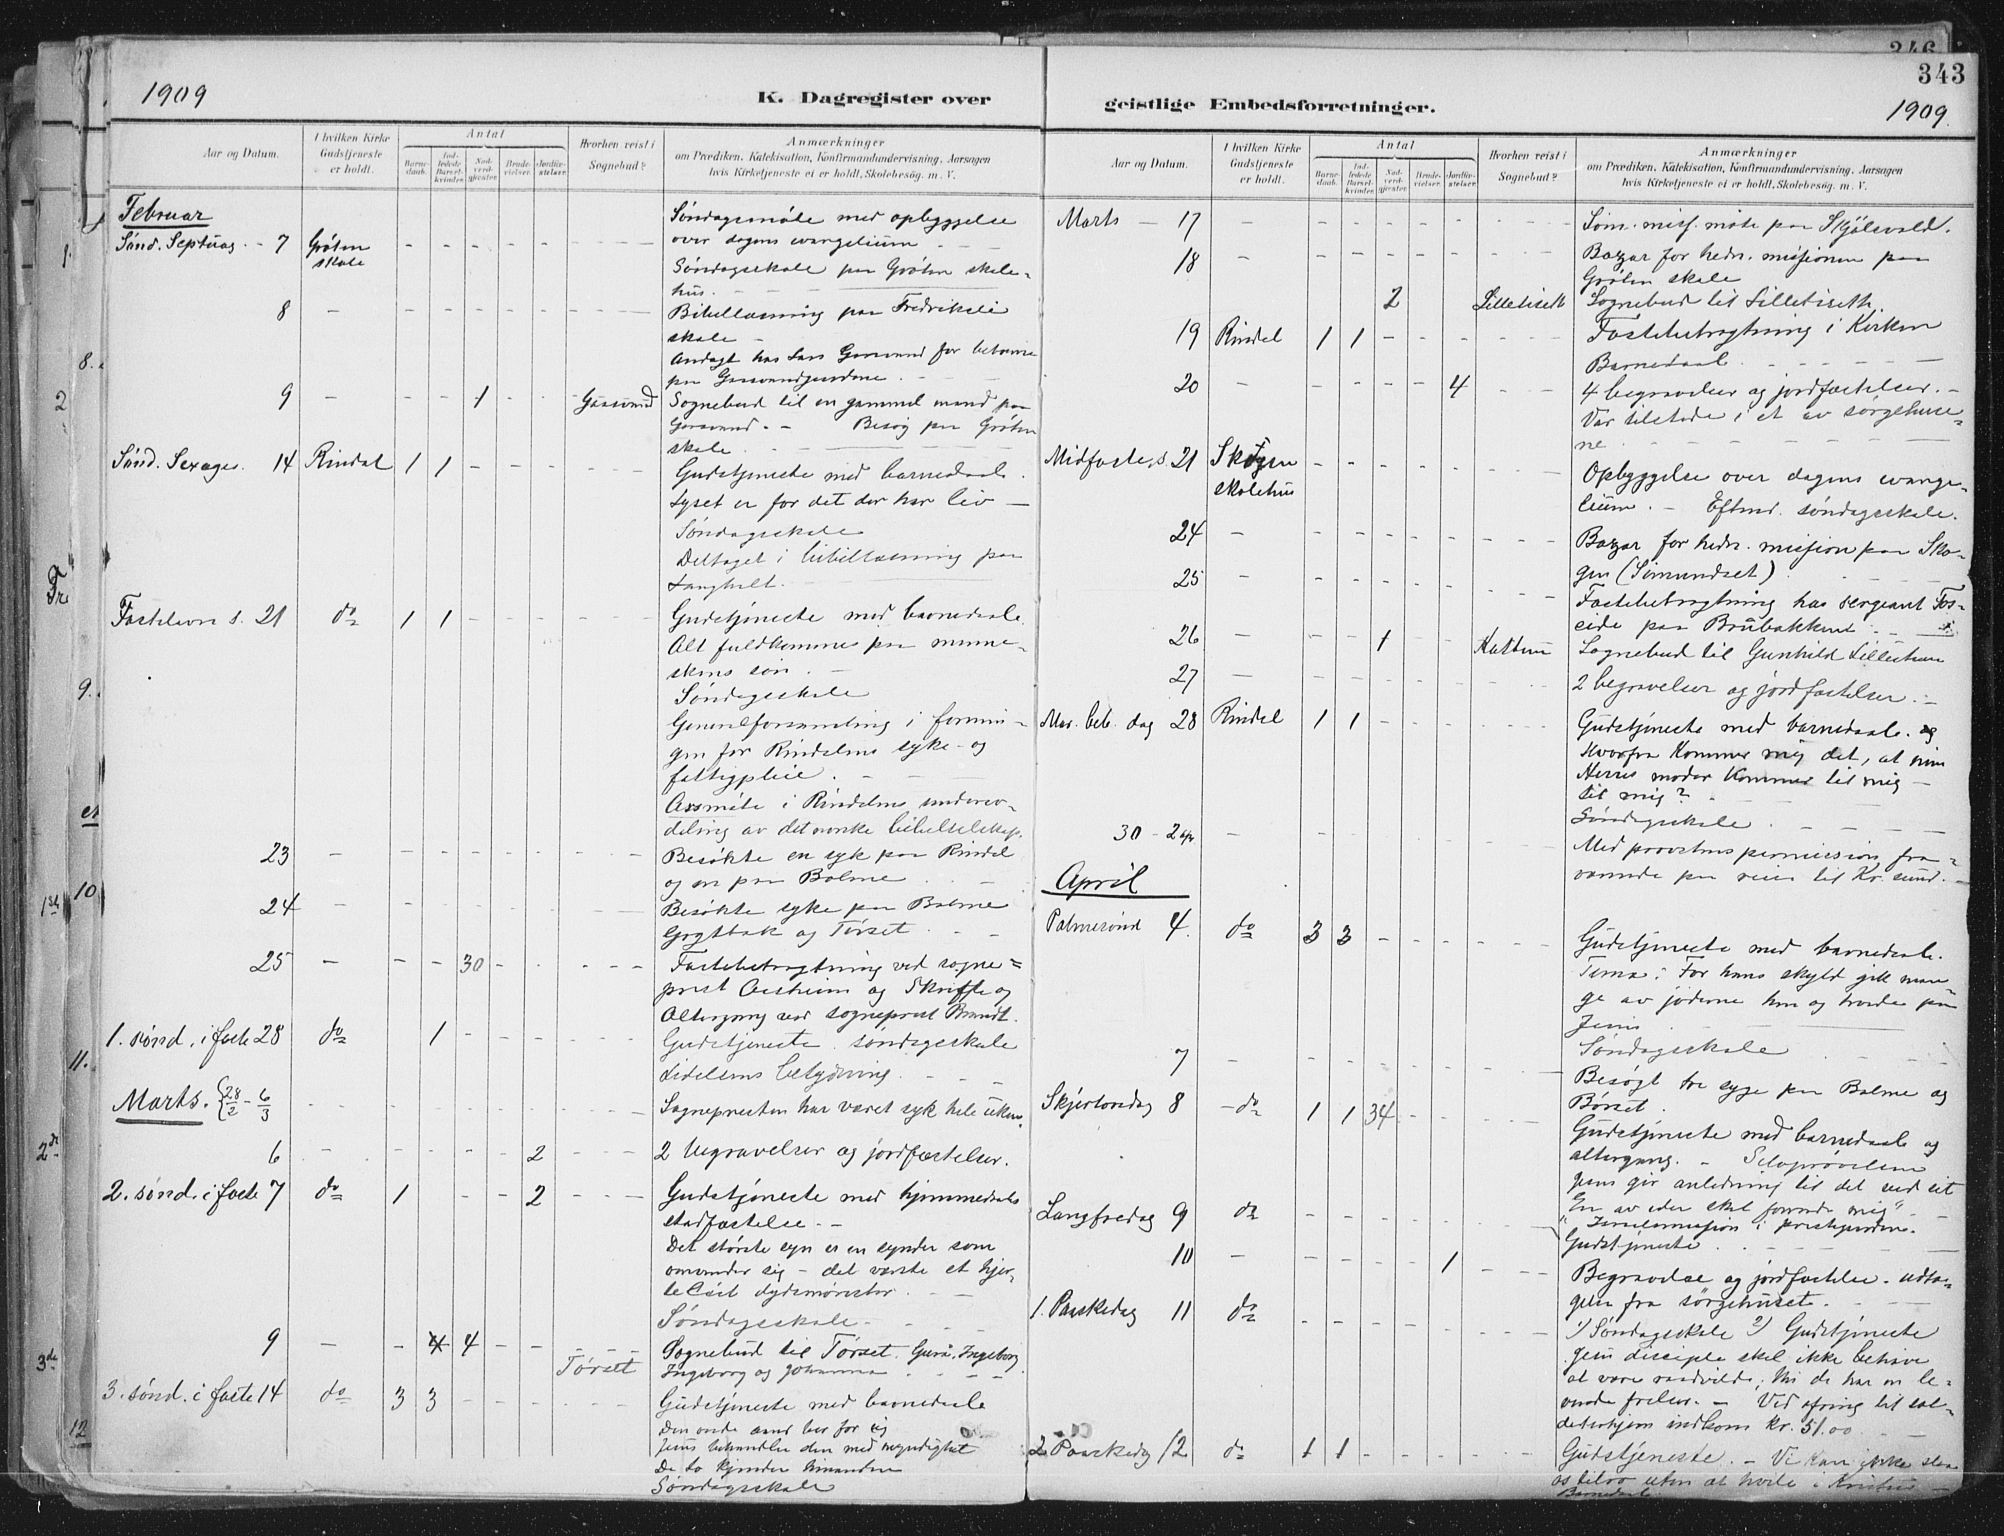 1909
K. Dagregister over
Aar og Datum.
I hvilken Kirke Gudstjeneste er holdt.
Antal
Barnedaab.
Indledede Barselkvinder.
Nadverdgjæster.
Brudevielser.
Jordfæstelser.
Hvorhen reist i Sognebud?
Anmærkninger
om Prædiken, Katekisation, Konfirmandundervisning, Aarsagen
hvis Kirketjeneste ei er holdt, Skolebesøg. m. V.
Februar
Sønd. Septuag. - 7 Grøten skole
Søndagsmøte med opbyggelse
over dagens evangelium
Søndagsskole paa Grøten skole-
hus.
8 Bibellæsning paa Fredriksli
skole
Andagt hos Lars for
paa
9 1 Gaasvand Sognebud til en gammel mand paa
Besøg paa Grøten
skole
Sønd. Sexages. 14 Rindal 1 1 Gudstjeneste med barnedaab.
Lyset er for det der har liv
Søndagsskole
Deltaget i bibellæsning paa
Langholt.
Fastelavns s. 21 do 1 1 Gudstjeneste med barnedaab.
Alt fuldkommes paa menne-
skens søn.
Søndagsskole
Generalforsamling i forenin-
gen for Rindalens syke- og
fattigpleie.
Aarsmøte i Rindalens underav-
deling av det norske bibelselskap.
23 Besøkte en syk paa Rindal
og en paa Bolme
24 Besøkte syke paa Bolme
og Tørset.
25 30 Fastebetragtning ved sogne-
prest og Skrifte og
Altergang ved sogneprest Brandt.
1. sønd. i faste 28 do 1 Gudstjeneste. søndagsskole
Lidelsens betydning.
Marts. 28/2 - 6/3 Sognepresten har været syk hele uken.
6 2 2 begravelser og jordfæstelser.
2. sønd. i faste 7 do 1 2 Gudstjeneste med hjemmedaabs
stadfæstelse.
Det største syn er en synder som
omvender sig - det værste et hjer-
te
Søndagsskole
9 4 4 Tørset Sognebud til Tørset. Guro, Ingeborg
Ingeborg og Johanna
3. sønd. i faste 14 do 3 3 Gudstjeneste med barnedaab
Den onde aand bor for sig
Jesus behandler den med myndighet
De to kjender hinanden
Søndagsskole
346
343
geistlige Embedsforretninger.
1909.
Aar og Datum.
I hvilken Kirke Gudstjeneste er holdt.
Antal
Barnedaab.
Indledede Barselkvinder.
Nadverdgjæster.
Brudevielser.
Jordfæstelser.
Hvorhen reist i Sognebud?
Anmærkninger
om Prædiken, Katekisation, Konfirmandundervisning, Aarsagen
hvis Kirketjeneste ei er holdt, Skolebesøg. m. V.
Marts - 17 miss. møte paa Skjølsvold.
18 Bazar for hedn. missionen paa
Grøten skole
2 Lilletiseth Sognebud til Lilletiseth.
19 Rindal 1 1 Fastebetragtning i Kirken
Barnedaab.
20 4 4 begravelser og jordfæstelser.
Var tilstede i et av sørgehuse-
ne
Midfaste s. 21 Skogen skolehus Opbyggelse over dagens evange-
lium. - Eftmd. søndagsskole.
24 Bazar for hedn. mission paa Sko-
gen (Simundset)
25 Fastebetragtning hos sergeant Fos-
eide paa Brubakken
26 1 Sognebud til Gunhild
27 2 begravelser og jordfæstelser.
Mar. beb. dag 28 Rindal 1 1 Gudstjeneste med barnedaab. og
Hvorfra kommer mig det, at min
Herres moder kommer til mig -
til mig?
Søndagsskole
30 - 2 apr Med provstens permission fra-
værende paa reise til Kr. sund.
April
Palmesønd 4. do 3 3 Gudstjeneste med barnedaab.
Tema: For hans skyld gik man-
ge av jøderne hen og trodde paa
Jesus.
Søndagsskole
7 Besøgt tre syge paa Bolme og
Børset.
Skjærtorsdag 8 do 1 1 34 Gudstjeneste med barnedaab og
altergang. - Selvprøvelsen
Jesus gir anledning til det ved sit
"En av eder skal forraade mig"
i prestegaarden.
Langfredag 9 do Gudstjeneste.
10 1 Begravelse og jordfæstelse. udta-
gen fra sørgehuset.
1. Paaskedag 11 do 1) Søndagsskole 2) Gudstjeneste
Jesu disciple skal ikke behøve
at være raadvilde; thi de har en le-
vende frelser. - Ved ofring til
indkom kr. 51.00
2. Paaskedag 12 do 1 1 Gudstjeneste. - Vi kan ikke slaa
os tilro uten at hvile i Kristus
Barnedaab.